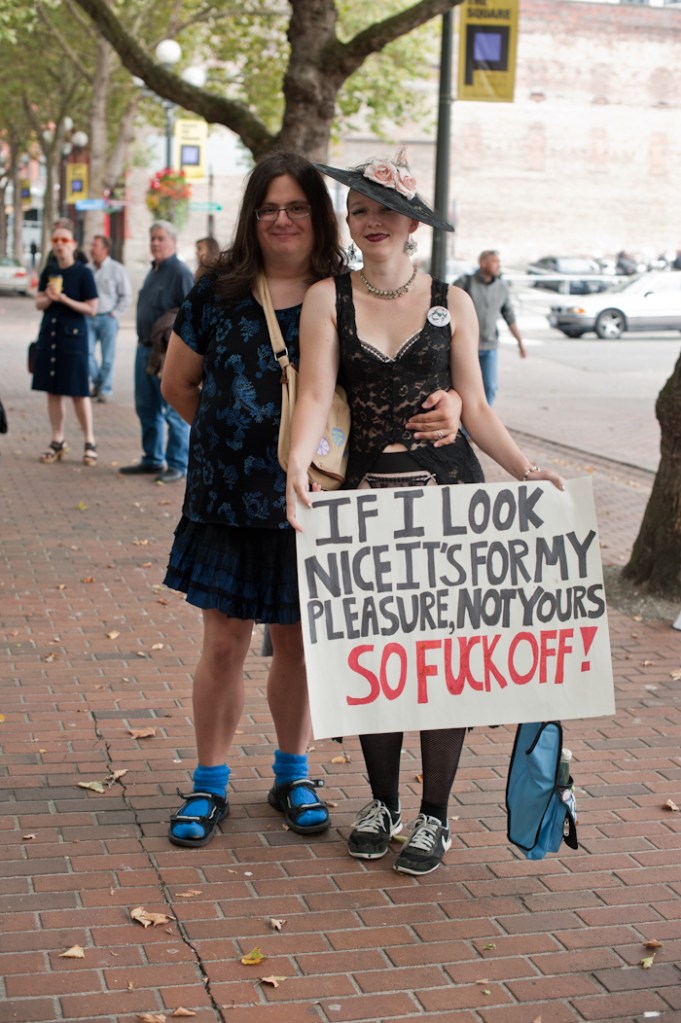 SQUARE
IF I LOOK
NICE IT'S FOR MY
PLEASURE, NOT YOURS
SO FUCK OFF!